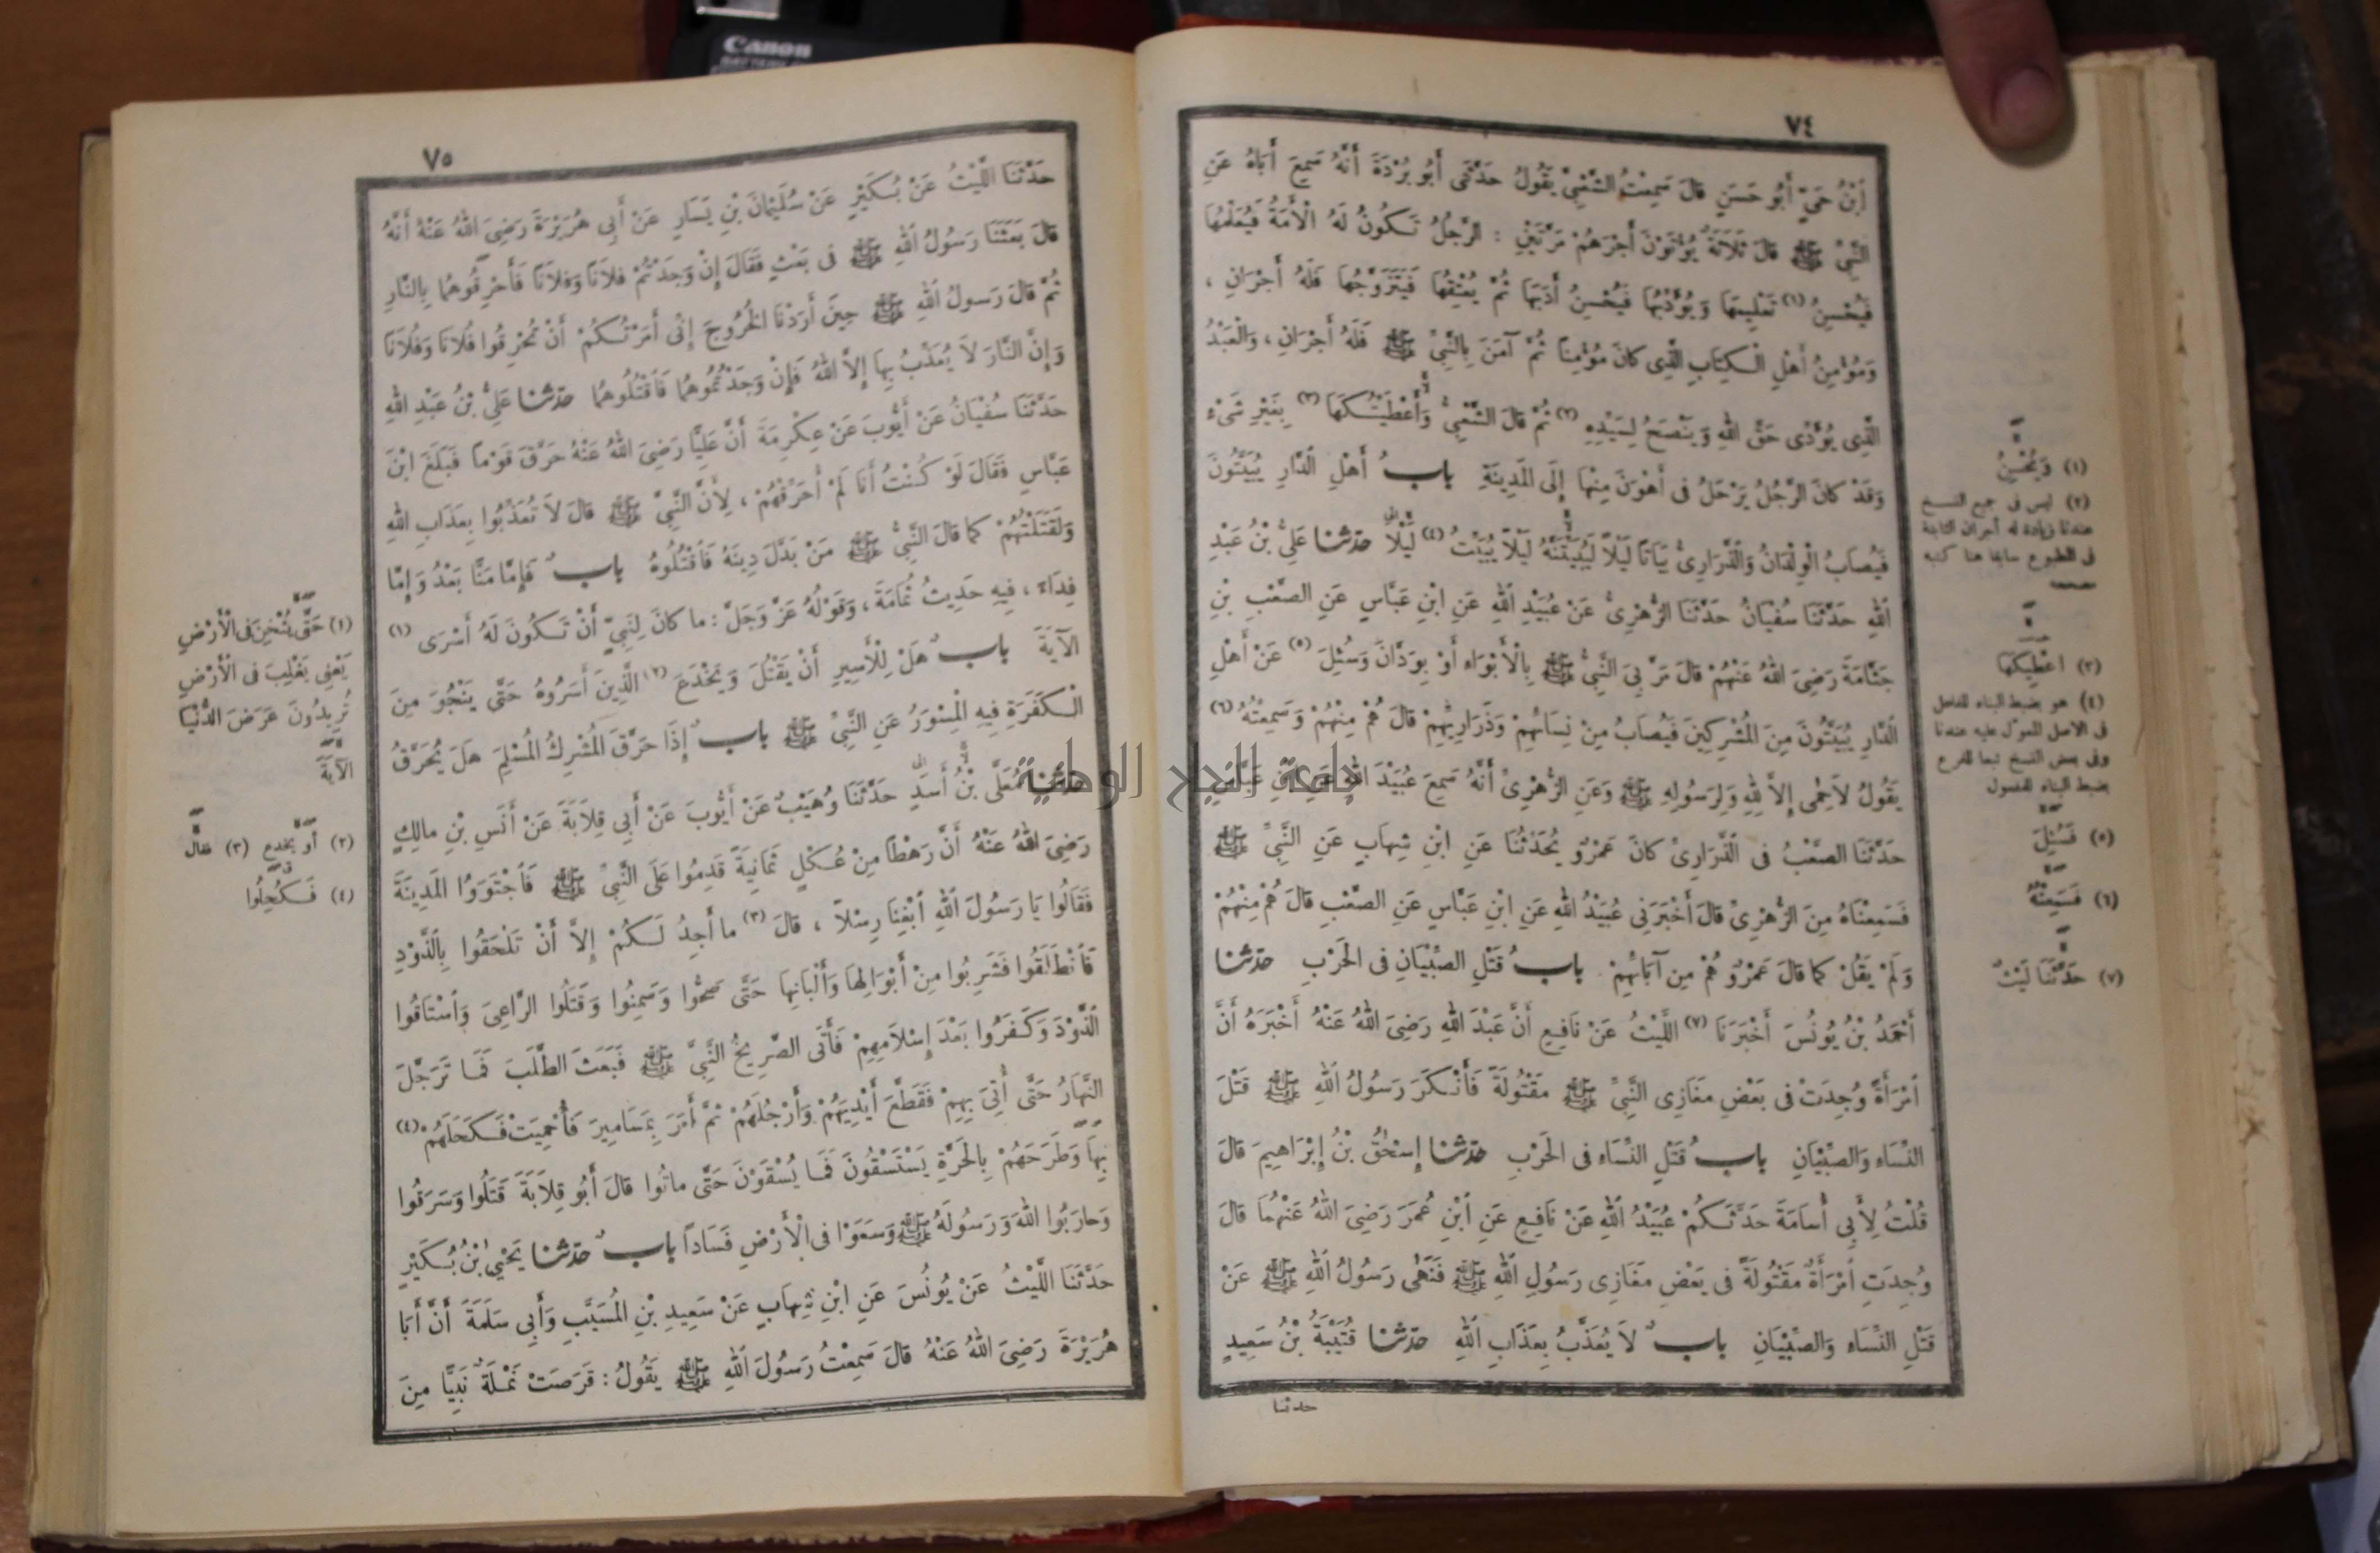 ٧٤
اَبْنُ حَيٍّ أَبُو حَسَنٍ قالَ سَمِعْتُ الشَّعْبِيَّ يَقُولُ حَدَّثَنِي أَبُو بُرْدَةَ أَنَّهُ سَمِعَ أَبَاهُ عَنِ
النَّبِيِّ ﷺ قالَ ثَلَاثَةٌ يُؤْتَوْنَ أَجْرَهُمْ مَرَّتَيْنِ : الرَّجُلُ تَكُونُ لَهُ الْأَمَةُ فَيُعَلِّمُهَا
فَيُحْسِنُ (١) تَعْلِيمَهَا وَيُؤَدِّبُهَا فَيُحْسِنُ أَدَبَهَا ثُمَّ يُعْتِقُهَا فَيَتَزَوَّجُهَا فَلَهُ أَجْرَانِ ،
وَمُؤْمِنُ أَهْلِ الْكِتَابِ الَّذِي كانَ مُؤْمِنًا ثُمَّ آمَنَ بِالنَّبِيِّ ﷺ فَلَهُ أَجْرَانِ ، وَالْعَبْدُ
الَّذِي يُؤَدِّي حَقَّ اللهِ وَيَنْصَحُ لِسَيِّدِهِ (٢) ثُمَّ قالَ الشَّعْبِيُّ وَأَعْطَيْتُكَهَا (٣) بِغَيْرِ شَيْءٍ
وَقَدْ كانَ الرَّجُلُ يَرْحَلُ فى أَهْوَنَ مِنْهَا إِلَى المَدِينَةِ بابُ أَهْلِ الدَّارِ يُبَيَّتُونَ
فَيُصَابُ الْوِلْدَانُ وَالذَّرَارِىُّ بَيَاتًا لَيْلًا لَيُبَيِّتَنَّهُ لَيْلًا يُبَيِّتُ (٤) لَيْلًا حدثنا عَلِيُّ بْنُ عَبْدِ
اللهِ حَدَّثَنَا سُفْيَانُ حَدَّثَنَا الزُّهْرِىُّ عَنْ عُبَيْدِ اللهِ عَنِ ابْنِ عَبَّاسٍ عَنِ الصَّعْبِ بْنِ
جَثَّامَةَ رَضِيَ اللهُ عَنْهُمْ قالَ مَرَّ بِيَ النَّبِيُّ ﷺ بِالْأَبْوَاءِ أَوْ بِوَدَّانَ وَسُئِلَ (٥) عَنْ أَهْلِ
الدَّارِ يُبَيَّتُونَ مِنَ المُشْرِكِينَ فَيُصَابُ مِنْ نِسَائِهِمْ وَذَرَارِيِّهِمْ قالَ هُمْ مِنْهُمْ وَسَمِعْتُهُ (٦)
يَقُولُ لَا حِمَى إِلَّا لِلهِ وَلِرَسُولِهِ ﷺ وَعَنِ الزُّهْرِىِّ أَنَّهُ سَمِعَ عُبَيْدَ اللهِ عَنِ ابْنِ عَبَّاسٍ
حَدَّثَنَا الصَّعْبُ فى الذَّرَارِىِّ كانَ عَمْرٌو يُحَدِّثُنَا عَنِ ابْنِ شِهَابٍ عَنِ النَّبِيِّ ﷺ
فَسَمِعْنَاهُ مِنَ الزُّهْرِىِّ قالَ أَخْبَرَنِي عُبَيْدُ اللهِ عَنِ ابْنِ عَبَّاسٍ عَنِ الصَّعْبِ قالَ هُمْ مِنْهُمْ
وَلَمْ يَقُلْ كما قالَ عَمْرٌو هُمْ مِن آبَائِهِمْ بابُ قَتْلِ الصِّبْيَانِ فى الحَرْبِ حدثنا
أَحْمَدُ بْنُ يُونُسَ أَخْبَرَنَا (٧) اللَّيْثُ عَنْ نَافِعٍ أَنَّ عَبْدَ اللهِ رَضِيَ اللهُ عَنْهُ أَخْبَرَهُ أَنَّ
اَمْرَأَةً وُجِدَتْ فى بَعْضِ مَغَازِى النَّبِيِّ ﷺ مَقْتُولَةً فَأَنْكَرَ رَسُولُ اللهِ ﷺ قَتْلَ
النِّسَاءِ وَالصِّبْيَانِ بابُ قَتْلِ النِّسَاءِ فى الحَرْبِ حدثنا إِسْحٰقُ بْنُ إِبْرَاهِيمَ قالَ
قُلْتُ لِأَبِي أُسَامَةَ حَدَّثَكُمْ عُبَيْدُ اللهِ عَنْ نَافِعٍ عَنِ ابْنِ عُمَرَ رَضِيَ اللهُ عَنْهُمَا قالَ
وُجِدَتِ اَمْرَأَةٌ مَقْتُولَةً فى بَعْضِ مَغَازِى رَسُولِ اللهِ ﷺ فَنَهَى رَسُولُ اللهِ ﷺ عَنْ
قَتْلِ النِّسَاءِ وَالصِّبْيَانِ بابٌ لَا يُعَذَّبُ بِعَذَابِ اللهِ حدثنا قُتَيْبَةُ بْنُ سَعِيدٍ
حدثنا
(١) وَيُحْسِنُ
(٢) ليس فى جميع النسخ
عندنا زيادة له أجران الثابتة
فى المطبوع سابقا هنا كتبه
مصححه
(٣) أُعْطِيكَهَا
(٤) هو بضبط البناء للفاعل
فى الاصل المعول عليه عندنا
وفى بعض النسخ تبعا للفرع
بضبط البناء للمفعول
(٥) فَسُئِلَ
(٦) فَسَمِعْتُهُ
(٧) حَدَّثَنَا لَيْثٌ
٧٥
حَدَّثَنَا اللَّيْثُ عَنْ بُكَيْرٍ عَنْ سُلَيْمَانَ بْنِ يَسَارٍ عَنْ أَبِي هُرَيْرَةَ رَضِيَ اللهُ عَنْهُ أَنَّهُ
قالَ بَعَثَنَا رَسُولُ اللهِ ﷺ فى بَعْثٍ فَقَالَ إِنْ وَجَدْتُمْ فُلَانًا وَفُلَانًا فَأَحْرِقُوهُمَا بِالنَّارِ
ثُمَّ قالَ رَسولُ اللهِ ﷺ حِينَ أَرَدْنَا الخُرُوجَ إِنِّى أَمَرْتُكُمْ أَنْ تُحْرِقُوا فُلَانًا وَفُلَانًا
وَإِنَّ النَّارَ لَا يُعَذِّبُ بِهَا إِلَّا اللهُ فَإِنْ وَجَدْتُمُوهُمَا فَاقْتُلُوهُمَا حدثنا عَلِيُّ بْنُ عَبْدِ اللهِ
حَدَّثَنَا سُفْيَانُ عَنْ أَيُّوبَ عَنْ عِكْرِمَةَ أَنَّ عَلِيًّا رَضِيَ اللهُ عَنْهُ حَرَّقَ قَوْمًا فَبَلَغَ ابْنَ
عَبَّاسٍ فَقَالَ لَوْ كُنْتُ أَنَا لَمْ أُحَرِّقْهُمْ ، لِأَنَّ النَّبِيَّ ﷺ قالَ لَا تُعَذِّبُوا بِعَذَابِ اللهِ
وَلَقَتَلْتُهُمْ كما قالَ النَّبِيُّ ﷺ مَنْ بَدَّلَ دِينَهُ فَاقْتُلُوهُ بابٌ فَإِمَّا مَنًّا بَعْدُ وَإِمَّا
فِدَاءً ، فِيهِ حَدِيثُ ثُمَامَةَ ، وَقَوْلُهُ عَزَّ وَجَلَّ : ما كانَ لِنَبِيٍّ أَنْ تَكُونَ لَهُ أَسْرَى (١)
الآيَةَ بابٌ هَلْ لِلْأَسِيرِ أَنْ يَقْتُلَ وَيَخْدَعَ (٢) الَّذِينَ أَسَرُوهُ حَتَّى يَنْجُوَ مِنَ
الْكَفَرَةِ فِيهِ الْمِسْوَرُ عَنِ النَّبِيِّ ﷺ بابٌ إِذَا حَرَّقَ المُشْرِكُ المُسْلِمَ هَلْ يُحَرَّقُ
حدثنا مُعَلَّى بْنُ أَسَدٍ حَدَّثَنَا وُهَيْبٌ عَنْ أَيُّوبَ عَنْ أَبِي قِلَابَةَ عَنْ أَنَسِ بْنِ مالِكٍ
رَضِيَ اللهُ عَنْهُ أَنَّ رَهْطًا مِنْ عُكْلٍ ثَمَانِيَةً قَدِمُوا عَلَى النَّبِيِّ ﷺ فَاجْتَوَوُا المَدِينَةَ
فَقَالُوا يَا رَسُولَ اللهِ اَبْغِنَا رِسْلًا ، قالَ (٣) ما أَجِدُ لَكُمْ إِلَّا أَنْ تَلْحَقُوا بِالذَّوْدِ
فَانْطَلَقُوا فَشَرِبُوا مِنْ أَبْوَالِهَا وَأَلْبَانِهَا حَتَّى صَحُّوا وَسَمِنُوا وَقَتَلُوا الرَّاعِيَ وَاسْتَاقُوا
الذَّوْدَ وَكَفَرُوا بَعْدَ إِسْلَامِهِمْ فَأَتَى الصَّرِيخُ النَّبِيَّ ﷺ فَبَعَثَ الطَّلَبَ فَمَا تَرَجَّلَ
النَّهَارُ حَتَّى أُتِيَ بِهِمْ فَقَطَّعَ أَيْدِيَهُمْ وَأَرْجُلَهُمْ ثُمَّ أَمَرَ بِمَسَامِيرَ فَأُحْمِيَتْ فَكَحَلَهُمْ (٤)
بِهَا وَطَرَحَهُمْ بِالحَرَّةِ يَسْتَسْقُونَ فَمَا يُسْقَوْنَ حَتَّى ماتُوا قالَ أَبُو قِلَابَةَ قَتَلُوا وَسَرَقُوا
وَحارَبُوا اللهَ وَرَسُولَهُ ﷺ وَسَعَوْا فى الْأَرْضِ فَسَادًا بابٌ حدثنا يَحْيىٰ بْنُ بُكَيْرٍ
حَدَّثَنَا اللَّيْثُ عَنْ يُونُسَ عَنِ ابْنِ شِهَابٍ عَنْ سَعِيدِ بْنِ المُسَيَّبِ وَأَبِي سَلَمَةَ أَنَّ أَبَا
هُرَيْرَةَ رَضِيَ اللهُ عَنْهُ قالَ سَمِعْتُ رَسُولَ اللهِ ﷺ يَقُولُ : قَرَصَتْ نَمْلَةٌ نَبِيًّا مِنَ
(١) حَتَّى يُثْخِنَ فى الْأَرْضِ
يَعْنِى يَغْلِبَ فى الْأَرْضِ
تُرِيدُونَ عَرَضَ الدُّنْيَا
الآيَةَ
(٢) أَوْ يَخْدَعَ (٣) فقال
(٤) فَكُحِلُوا
جامعة النجاح الوطنية
Canon